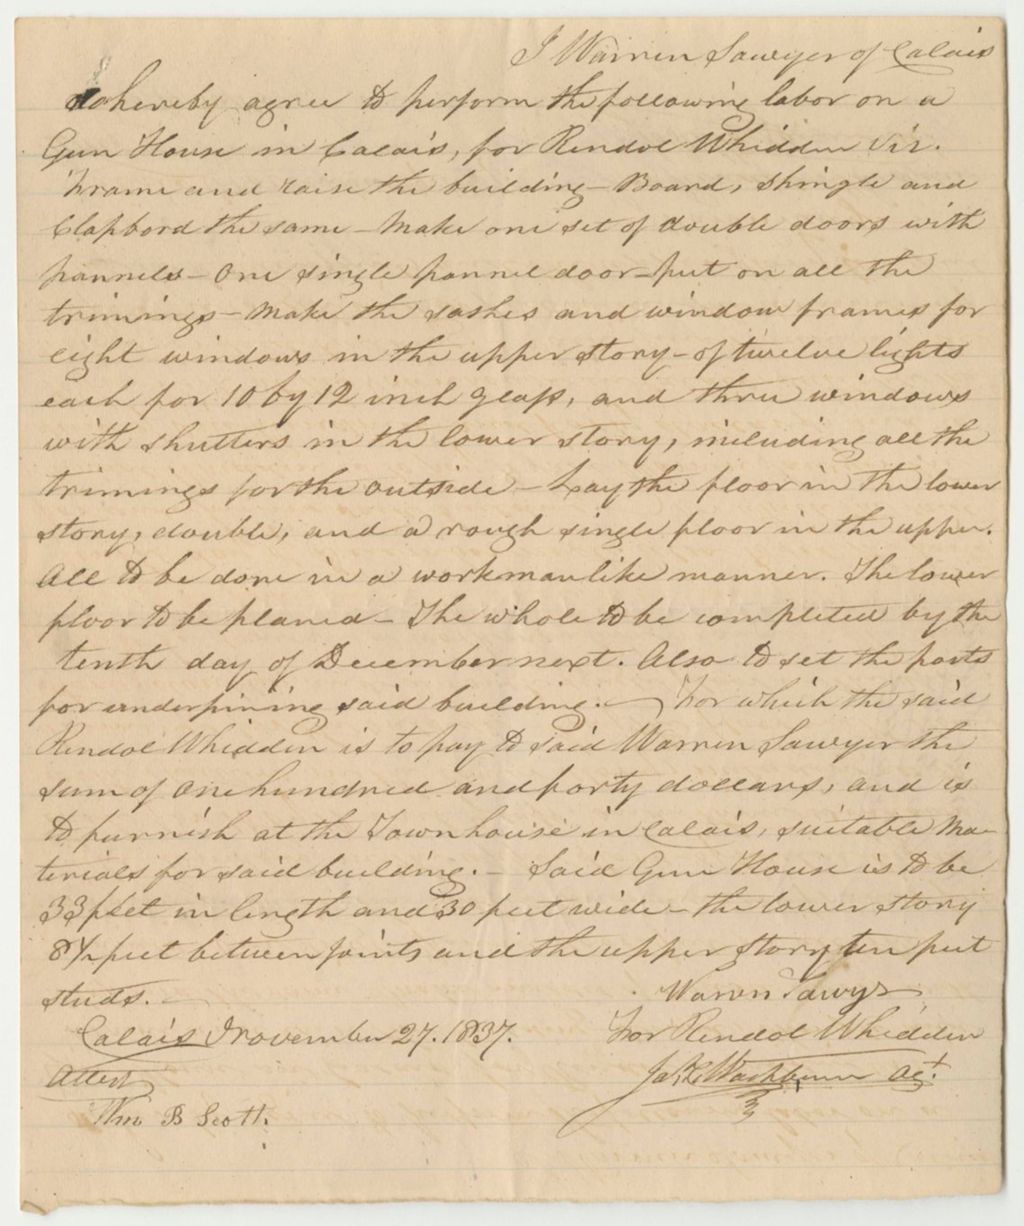 I Warren Sawyer of Calais
do hereby agree to perform the following labor on a
Gun House in Calais, for Rendol Whidden Viz.
Frame and raise the building - Board, shingle and
Clapbord the same - Make one set of double doors with
pannels - One single pannel door - put on all the
trimings - Make the sashes and window frames for
eight windows in the upper story - of twelve lights
each for 10 by 12 inch glass, and three windows
with shutters in the lower story, including all the
trimings for the outside - Lay the floor in the lower
story, double, and a rough single floor in the upper.
All to be done in a workmanlike manner. The lower
floor to be planed - The whole to be completed by the
tenth day of December next. Also to set the posts
for underpining said building. - For which the said
Rendol Whidden is to pay to said Warren Sawyer the
sum of one hundred and forty dollars, and is
to furnish at the Town house in Calais, suitable Ma-
terials for said building. - Said Gun House is to be
33 feet in length and 30 feet wide - the lower story
8½ feet between joints and the upper story ten feet
studs. -
Warren Sawyer
Calais November 27. 1837.
For Rendol Whidden
Attest
Washburn Agt.
Wm B Scott.